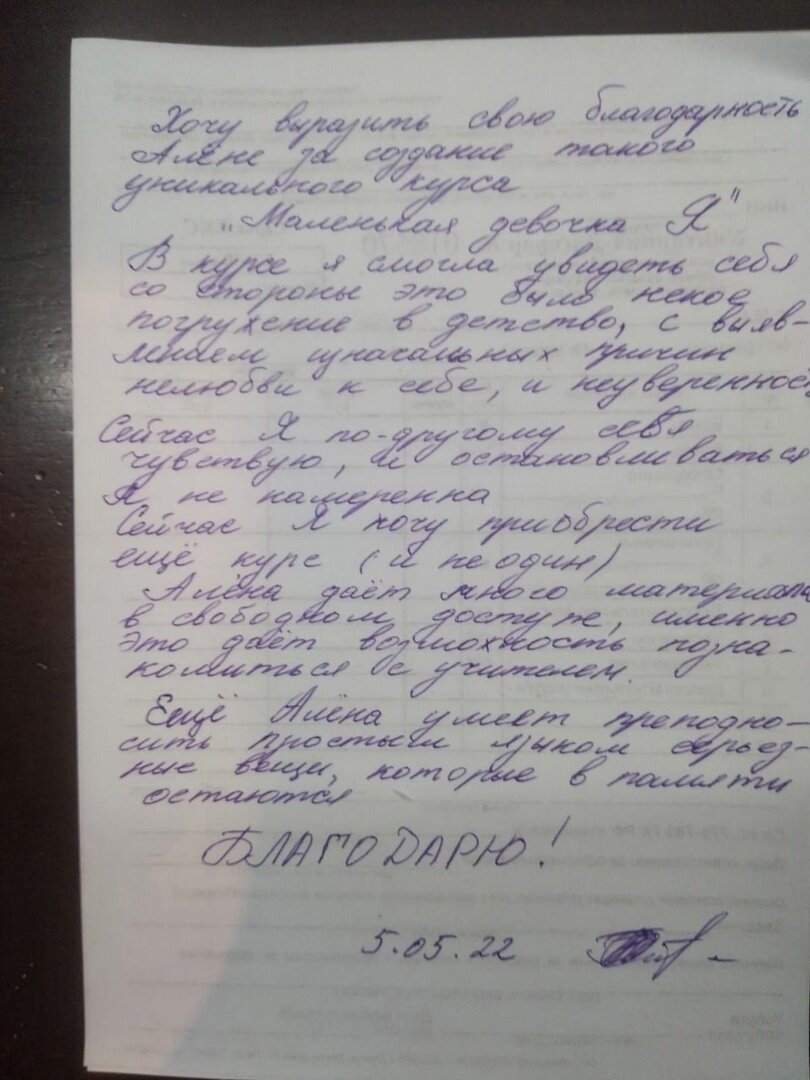 Хочу выразить свою благодарность
Алёне за создание такого
уникального курса
„Маленькая девочка Я"
В курсе я смогла увидеть себя
со стороны это было некое
погружение в детство, с выяв-
лением изначальных причин
нелюбви к себе, и неуверенность
Сейчас Я по-другому себя
чувствую, и остановливаться
Я не намеренна
Сейчас Я хочу приобрести
ещё курс (и не один)
Алёна даёт много материала
в свободном доступе, именно
это даёт возможность позна-
комиться с учителем.
Ещё Алёна умеет преподно-
сить простым языком серьез-
ные вещи, которые в памяти
остаются
БЛАГОДАРЮ!
5.05.22